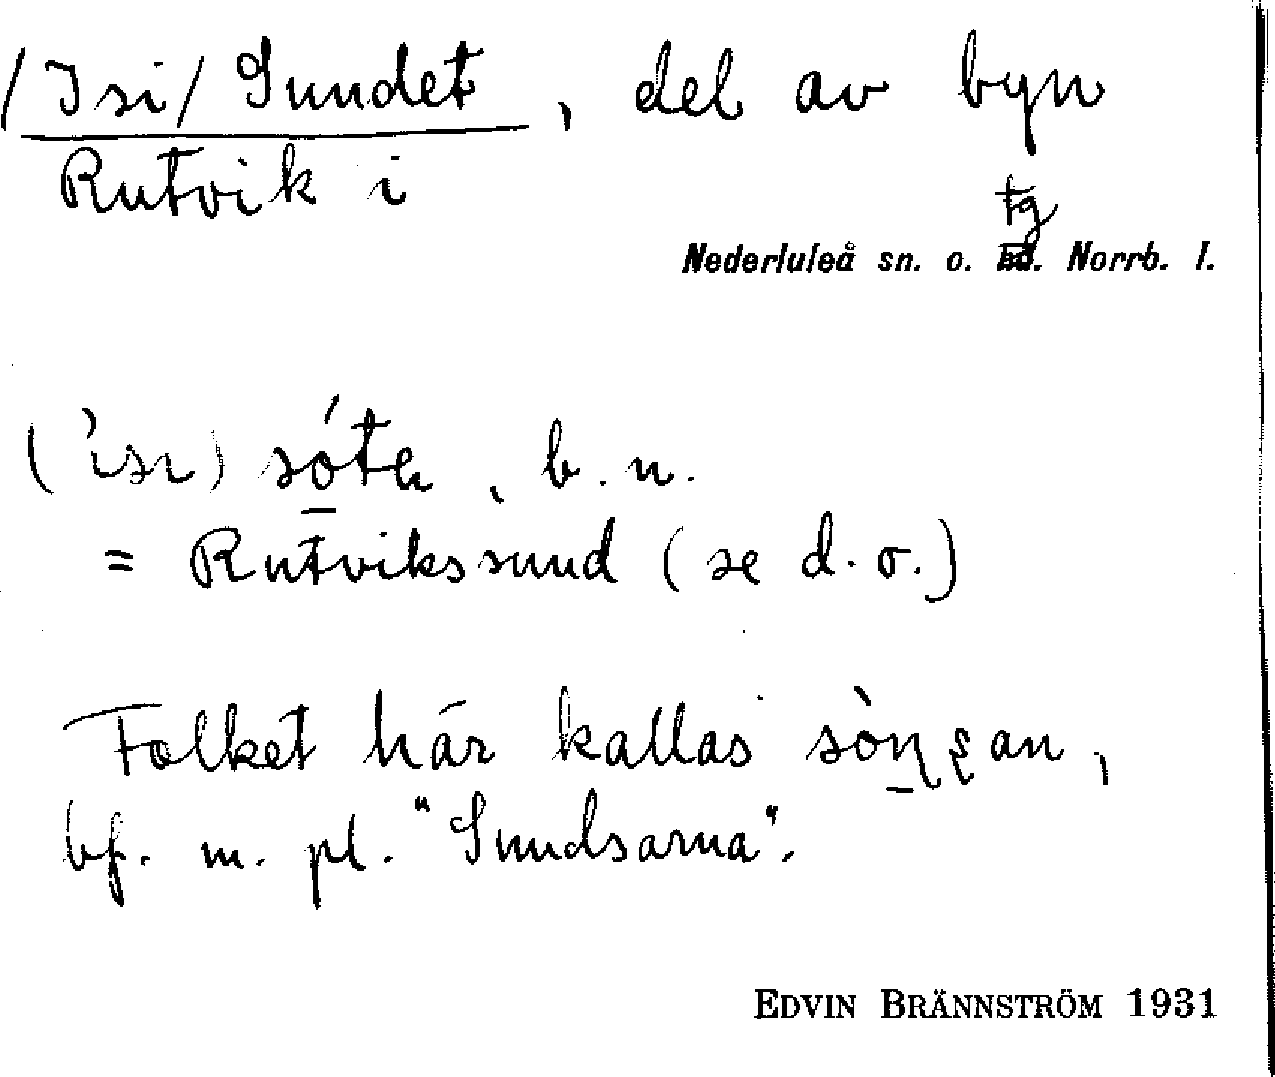 /Isi/ Sundet, del av byn
Rutvik i
tg
Nederluleå sn. o. Norrb. l.
('ısı) sótɐ, b. n.
= Rutvikssund (se d. o.)
Folket här kallas sòṇṣan,
bf. m. pl. "Sundsarna".
EDVIN BRÄNNSTRÖM 1931